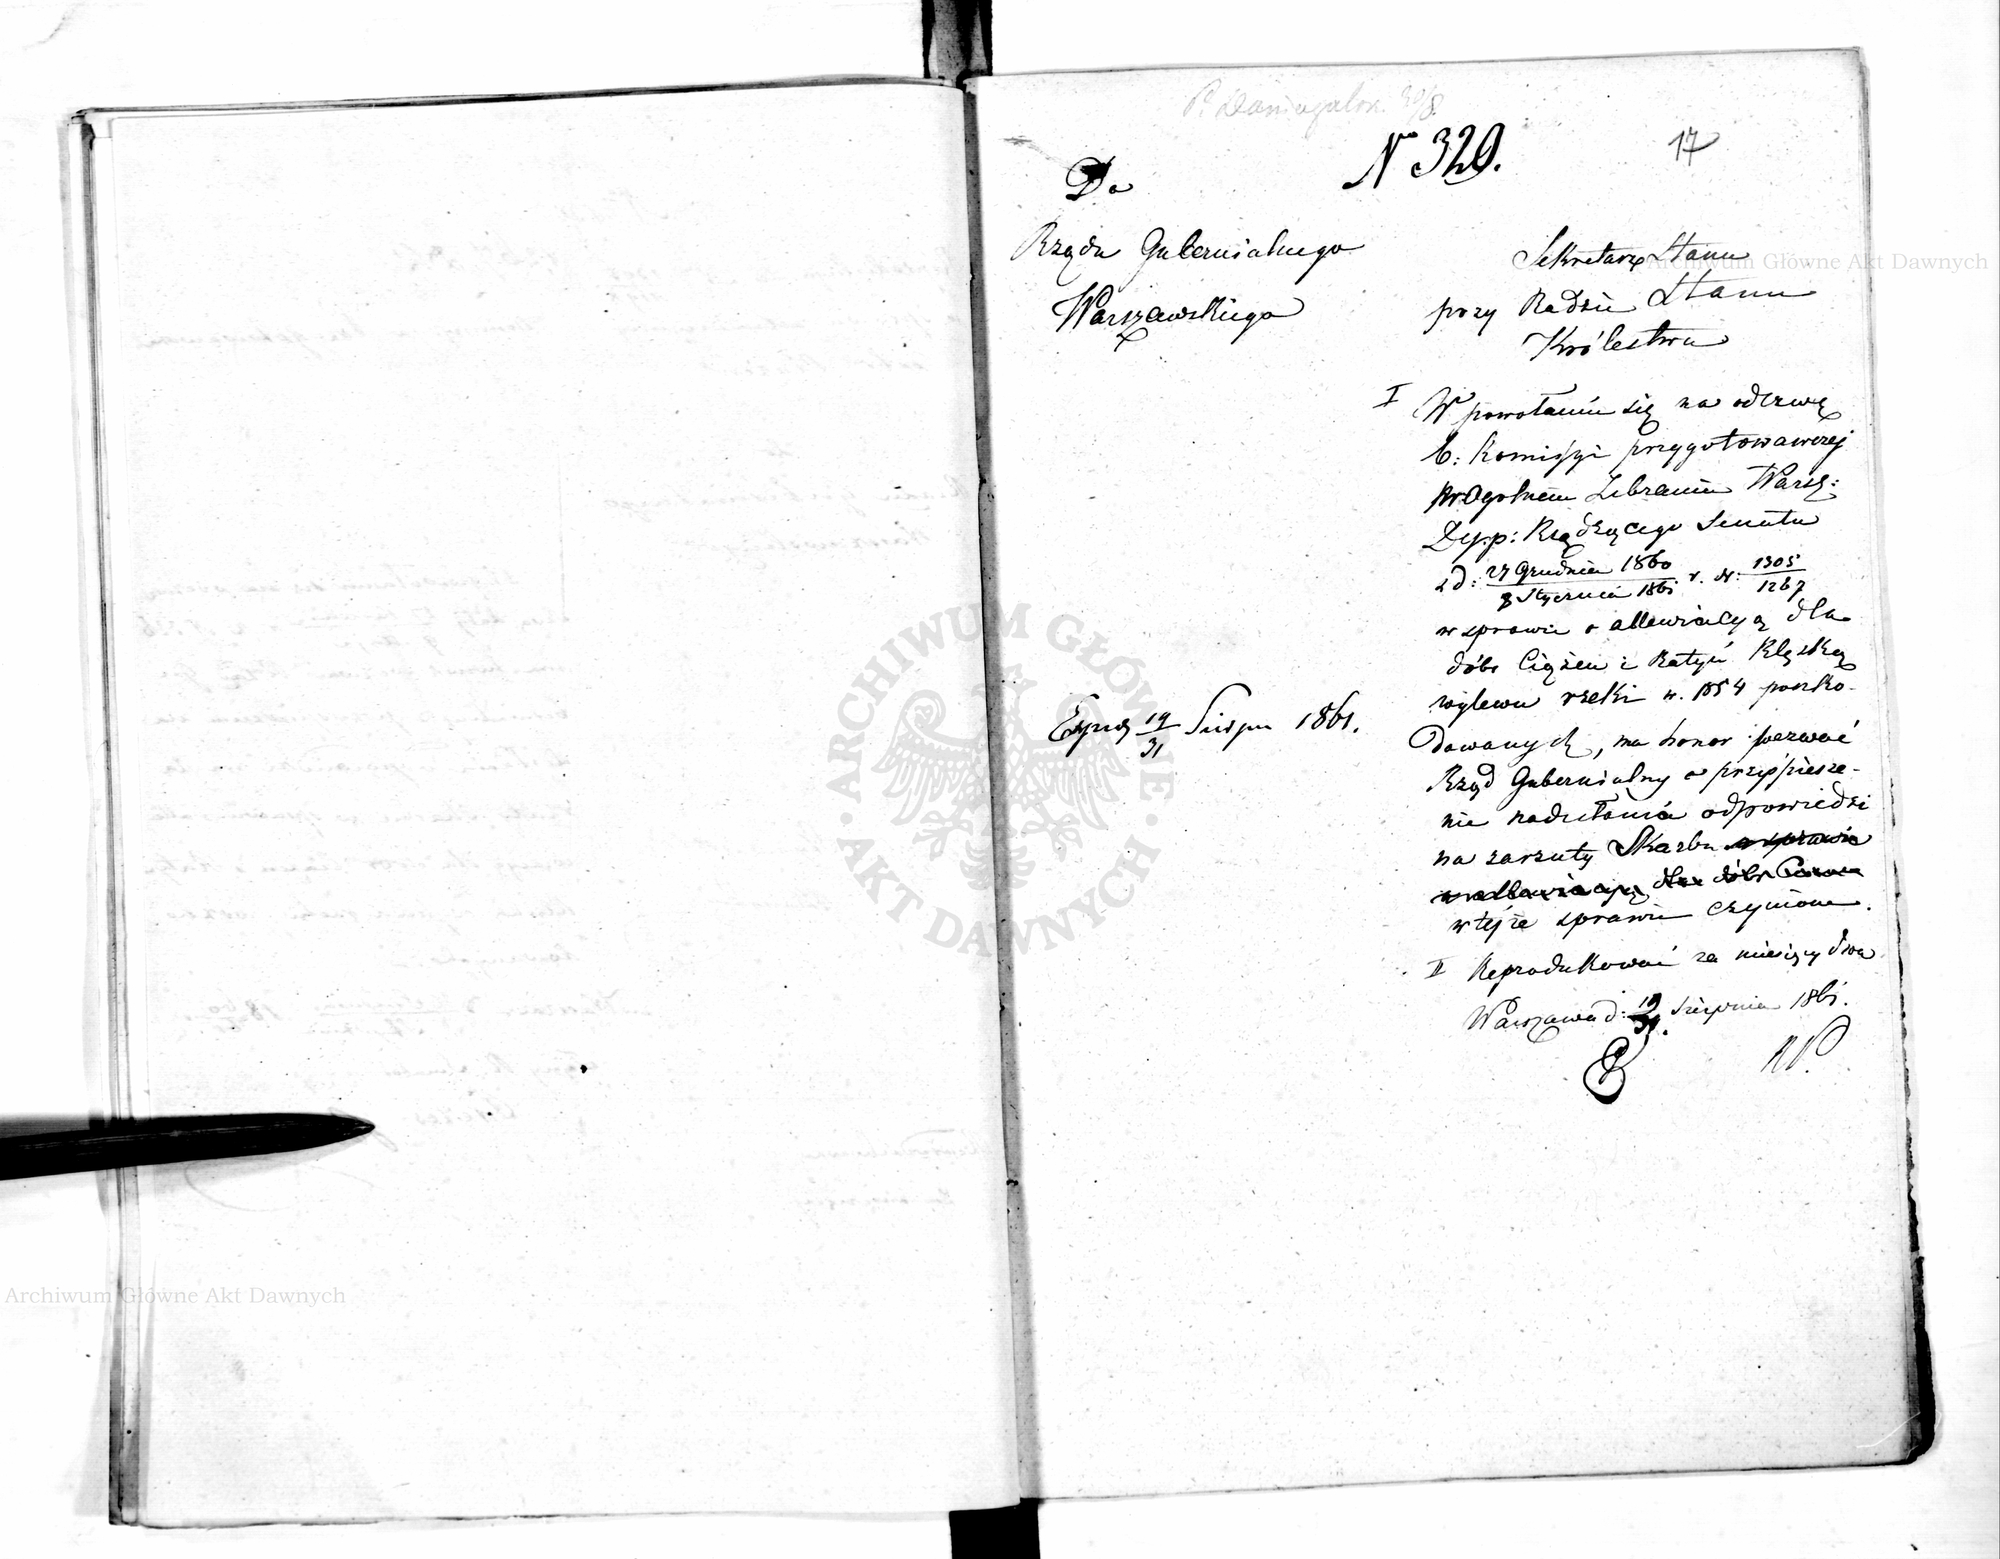 N 320.
17
Do
Rządu Gubernialnego
Warszawskiego
Sekretarz Stanu
przy Radzie Stanu
Królestwa
I W powołaniu się na odezwę
b: Kommissyi przygotowawczej
przy Ogólnem Zebraniu Warsz:
Depp: Rządzącego Senatu
z d: 27 Grudnia 1860 / 8 Stycznia 1861 r. N: 1305 / 1267
w sprawie o allewiacyą dla
dóbr Ciążeń i Ratyń klęską
wylewu rzeki w. 1854 poszko-
dowanych, ma honor wezwać
Rząd Gubernialny o przyśpiesze-
nie nadesłania odpowiedzi
na zarzuty Skarbu w sprawie
o allewiacyą dla dóbr
w tejże sprawie czynione.
II Reprodukować za miesięcy dwa
Warszawa d: 19/31 Sierpnia 1861.
Exped 19/31 Sierpn 1861.
Archiwum Główne Akt Dawnych
ARCHIWUM GŁÓWNE · AKT DAWNYCH ·
Archiwum Główne Akt Dawnych